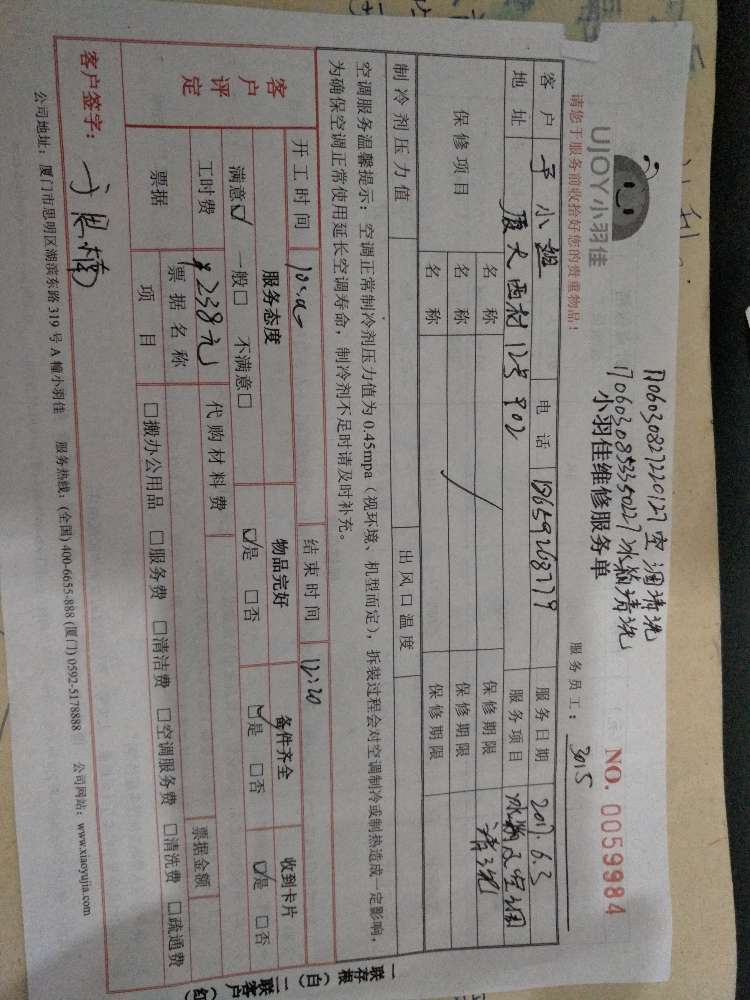 UJOY小羽佳
请您于服务前收拾好您的贵重物品!
1706030827220127空调清洗
冰箱清洗
小羽佳维修服务单
NO. 0059984
服务员工: 3015
客户 小姐 电话 服务日期 2017.6.3
地址 厦大西村 902 服务项目 冰箱及空调清洗
保修项目 名称 保修期限
名称 保修期限
名称 保修期限
制冷剂压力值 出风口温度
空调服务温馨提示:空调正常制冷剂压力值为0.45mpa(视环境、机型而定),拆装过程会对空调制冷或制热造成一定影响,
为确保空调正常使用延长空调寿命,制冷剂不足时请及时补充。
客户评定
开工时间 结束时间 12:20
服务态度 物品完好 备件齐全 收到卡片
满意☑ 一般□ 不满意□ ☑是 □否 ☑是 □否 ☑是 □否
工时费 ¥238元 代购材料费
票据 票据名称 票据金额
项目 □搬办公用品 □服务费 □清洁费 □空调服务费 □清洗费 □疏通费
客户签字:
公司地址:厦门市思明区湖滨东路319号A幢小羽佳 服务热线:(全国)400-6655-888 (厦门)0592-5178888 公司网站:www.xiaoyujia.com
一联存根(白) 二联客户(红)